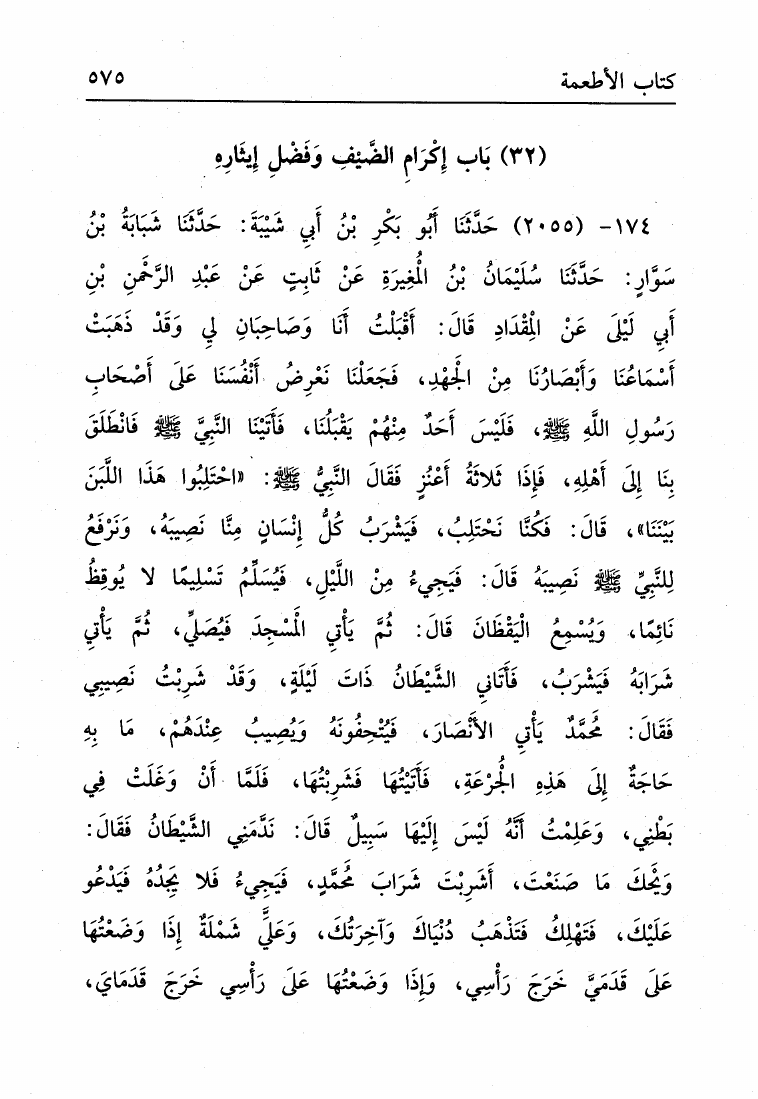 كتاب الأطعمة ٥٧٥
(٣٢) بَاب إِكْرَامِ الضَّيْفِ وَفَضْلِ إِيثَارِهِ
١٧٤- (٢٠٥٥) حَدَّثَنَا أَبُو بَكْرِ بْنُ أَبِي شَيْبَةَ: حَدَّثَنَا شَبَابَةُ بْنُ
سَوَّارٍ: حَدَّثَنَا سُلَيْمَانُ بْنُ الْمُغِيرَةِ عَنْ ثَابِتٍ عَنْ عَبْدِ الرَّحْمَنِ بْنِ
أَبِي لَيْلَى عَنْ الْمِقْدَادِ قَالَ: أَقْبَلْتُ أَنَا وَصَاحِبَانِ لِي وَقَدْ ذَهَبَتْ
أَسْمَاعُنَا وَأَبْصَارُنَا مِنْ الْجَهْدِ، فَجَعَلْنَا نَعْرِضُ أَنْفُسَنَا عَلَى أَصْحَابِ
رَسُولِ اللَّهِ ﷺ، فَلَيْسَ أَحَدٌ مِنْهُمْ يَقْبَلُنَا، فَأَتَيْنَا النَّبِيَّ ﷺ فَانْطَلَقَ
بِنَا إِلَى أَهْلِهِ، فَإِذَا ثَلَاثَةُ أَعْنُزٍ فَقَالَ النَّبِيُّ ﷺ: «احْتَلِبُوا هَذَا اللَّبَنَ
بَيْنَنَا»، قَالَ: فَكُنَّا نَحْتَلِبُ، فَيَشْرَبُ كُلُّ إِنْسَانٍ مِنَّا نَصِيبَهُ، وَنَرْفَعُ
لِلنَّبِيِّ ﷺ نَصِيبَهُ قَالَ: فَيَجِيءُ مِنْ اللَّيْلِ، فَيُسَلِّمُ تَسْلِيمًا لَا يُوقِظُ
نَائِمًا، وَيُسْمِعُ الْيَقْظَانَ قَالَ: ثُمَّ يَأْتِي الْمَسْجِدَ فَيُصَلِّي، ثُمَّ يَأْتِي
شَرَابَهُ فَيَشْرَبُ، فَأَتَانِي الشَّيْطَانُ ذَاتَ لَيْلَةٍ، وَقَدْ شَرِبْتُ نَصِيبِي
فَقَالَ: مُحَمَّدٌ يَأْتِي الْأَنْصَارَ، فَيُتْحِفُونَهُ وَيُصِيبُ عِنْدَهُمْ، مَا بِهِ
حَاجَةٌ إِلَى هَذِهِ الْجُرْعَةِ، فَأَتَيْتُهَا فَشَرِبْتُهَا، فَلَمَّا أَنْ وَغَلَتْ فِي
بَطْنِي، وَعَلِمْتُ أَنَّهُ لَيْسَ إِلَيْهَا سَبِيلٌ قَالَ: نَدَّمَنِي الشَّيْطَانُ فَقَالَ:
وَيْحَكَ مَا صَنَعْتَ، أَشَرِبْتَ شَرَابَ مُحَمَّدٍ، فَيَجِيءُ فَلَا يَجِدُهُ فَيَدْعُو
عَلَيْكَ، فَتَهْلِكُ فَتَذْهَبُ دُنْيَاكَ وَآخِرَتُكَ، وَعَلَيَّ شَمْلَةٌ إِذَا وَضَعْتُهَا
عَلَى قَدَمَيَّ خَرَجَ رَأْسِي، وَإِذَا وَضَعْتُهَا عَلَى رَأْسِي خَرَجَ قَدَمَايَ،